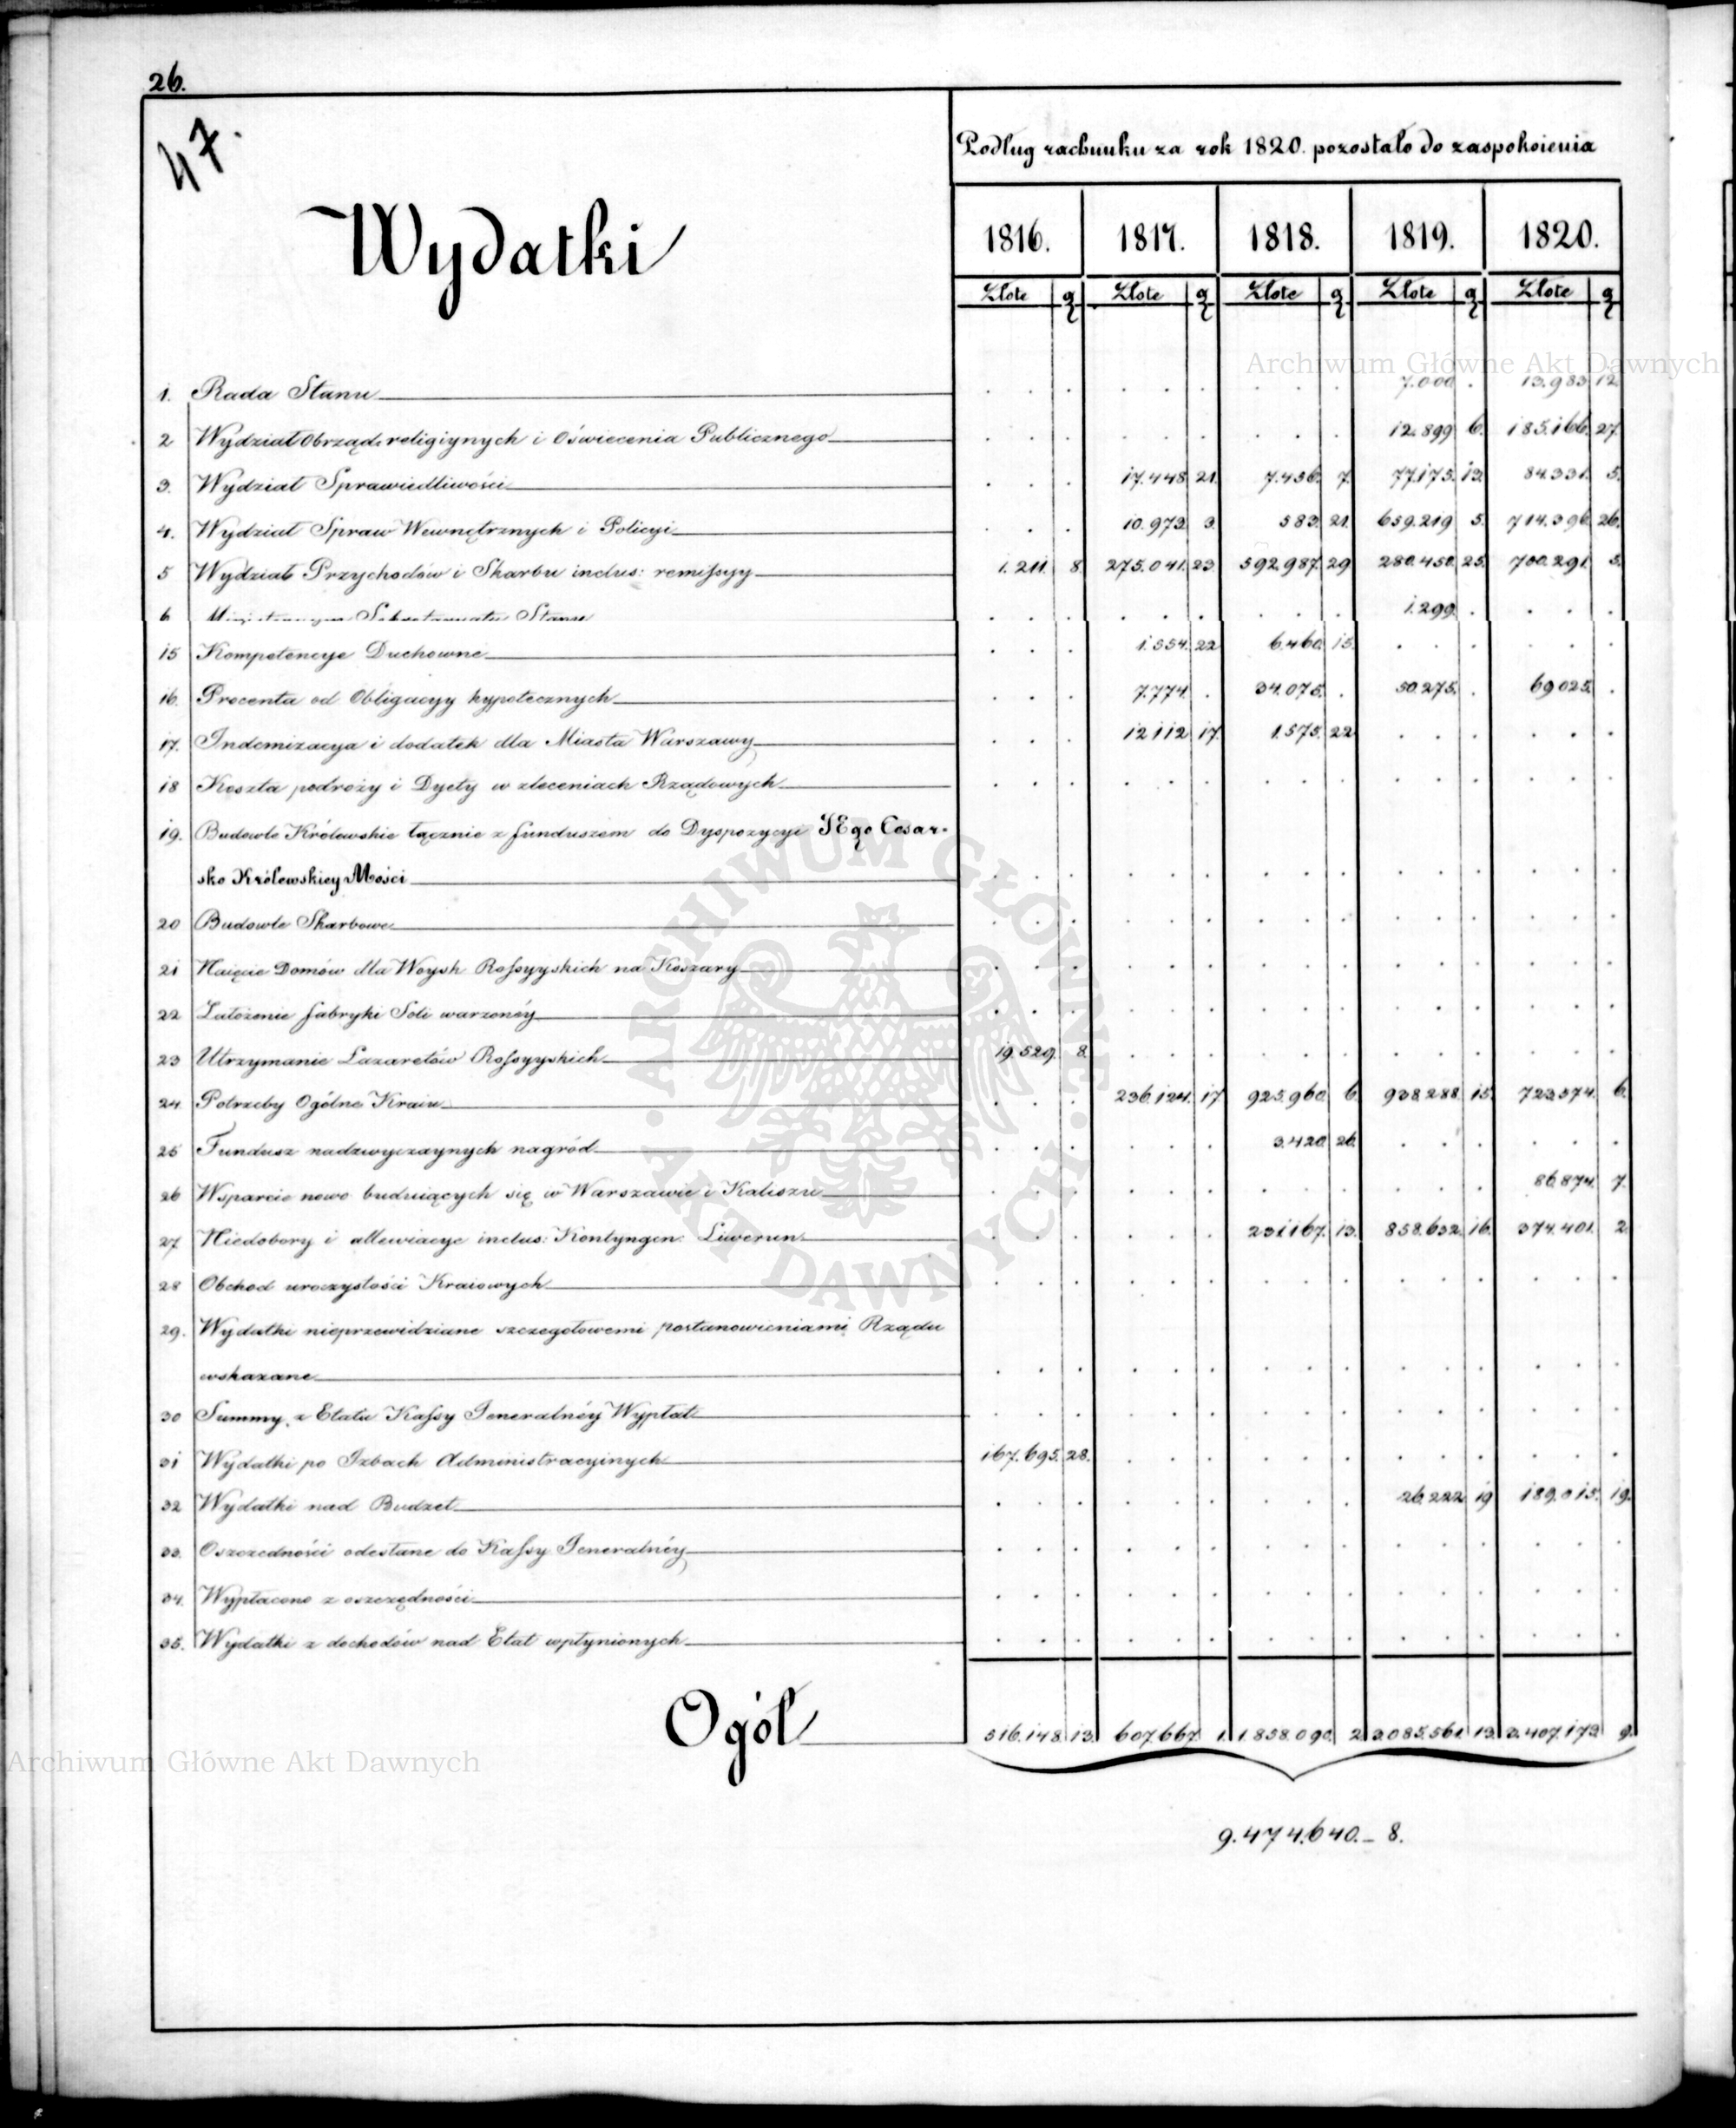 26.
47.
Podług rachunku za rok 1820. pozostało do zaspokoienia
Wydatki
1816. 1817. 1818. 1819. 1820.
Złote g Złote g Złote g Złote g Złote g
Archiwum Główne Akt Dawnych
1. Rada Stanu 7.000 . 13.983 12.
2 Wydział Obrząd: religiynych i Oświecenia Publicznego 12.899 6. 185.166. 27.
3. Wydział Sprawiedliwości 17.448 21. 7.456. 7. 77.175. 13. 84.331. 5.
4. Wydział Spraw Wewnętrznych i Policyi 10.973. 3. 583. 21. 659.219 5. 714.396. 26.
5 Wydział Przychodów i Skarbu inclus: remissyy 1.211. 8. 275.041. 23. 592.987. 29 280.450. 25. 700.291. 5.
6 Sekretaryatu Stanu 1.299. .
15 Kompetencye Duchowne 1.554. 22 6.460. 15.
16. Procenta od Obligacyy hypotecznych 7.774. . 34.075. . 50.275. . 69025. .
17. Indemizacya i dodatek dla Miasta Warszawy 12112. 17. 1.575. 22
18 Koszta podroży i Dyety w zleceniach Rządowych
19. Budowle Królewskie łącznie z funduszem do Dyspozycyi JEgo Cesar-
sko Królewskiey Mości
20 Budowle Skarbowe
21 Naięcie Domów dla Woysk Rossyyskich na Koszary
22 Założenie fabryki Soli warzonéy
23 Utrzymanie Lazaretów Rossyyskich 19.529. 8.
24. Potrzeby Ogólne Kraiu 236.124. 17. 925.960. 6. 938.288. 15. 723.574. 6.
25 Fundusz nadzwyczaynych nagród 3.420. 26.
26 Wsparcie nowo buduiących się w Warszawie i Kaliszu 86.874. 7.
27 Niedobory i allewiacye inclus: Kontyngen: Liwerun: 231167. 13. 858.632. 16. 374.401. 2.
28 Obchod uroczystości Kraiowych
29. Wydatki nieprzewidziane szczegołowemi postanowieniami Rządu
wskazane
30 Summy z Etatu Kassy Jeneralnéy Wypłat
31 Wydatki po Izbach Administracyinych 167.695. 28.
32 Wydatki nad Budżet 26.222. 19 189.015. 19.
33. Oszczedności odesłane do Kassy Jeneralnéy
34. Wypłacono z oszczędności
35. Wydatki z dochodów nad Etat wpłynionych
Ogół 516.148. 13. 607.667. 1. 1.858.090. 2. 3.085.561. 13. 3.407.173. 9.
9.474.640.– 8.
ARCHIWUM GŁÓWNE · AKT DAWNYCH ·
Archiwum Główne Akt Dawnych